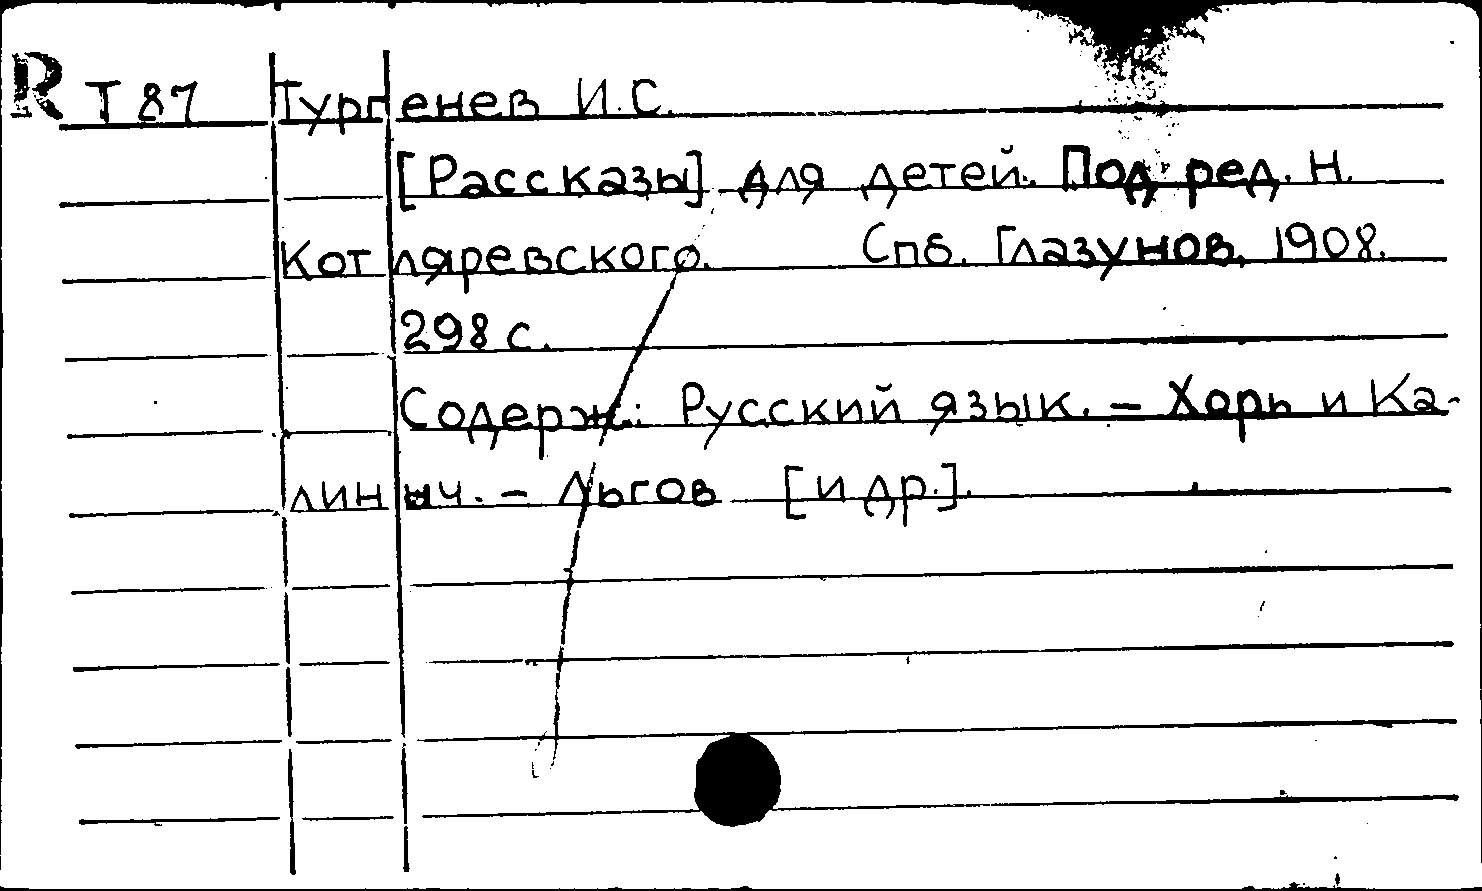 R Т 87 Тургенев И.С.
[Рассказы] для детей. Под ред. Н.
Котляревского. Спб. Глазунов, 1908.
298 с.
Содерж.: Русский язык. – Хорь и Ка-
линыч. – Льгов [и др.].